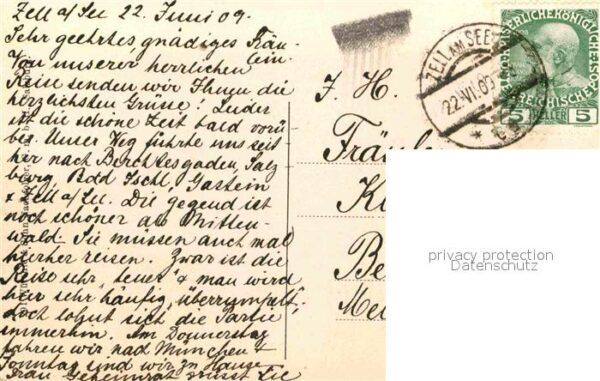 Zell a/See 22. Juni 09.
Sehr geehrtes, gnädiges Fräu-
lein.
Von unserer herrlichen
Reise senden wir Ihnen die
herzlichsten Grüsse! Leider
ist die schöne Zeit bald vorü-
ber. Unser Weg führte uns seit
her nach Berchtesgaden, Salz
burg, Bad Ischl, Gastein
& Zell a/See. Die Gegend ist
noch schöner als Mitten-
wald. Sie müssen auch mal
hierher reisen. Zwar ist die
Reise sehr "teuer" & man wird
hier sehr häufig "überrumpelt",
doch lohnt sich die Partie
immerhin. Am Donnerstag
fahren wir nach München &
Sonntag sind wir zu Hause.
Frau Geheimrat grüsst Sie
J. H.
Fräul
K
Be
Me
ZELL AM SEE
22.VI.09
KAISERLICHE KÖNIGLICHE
ÖSTERREICHISCHE POST
5 HELLER 5
privacy protection
Datenschutz